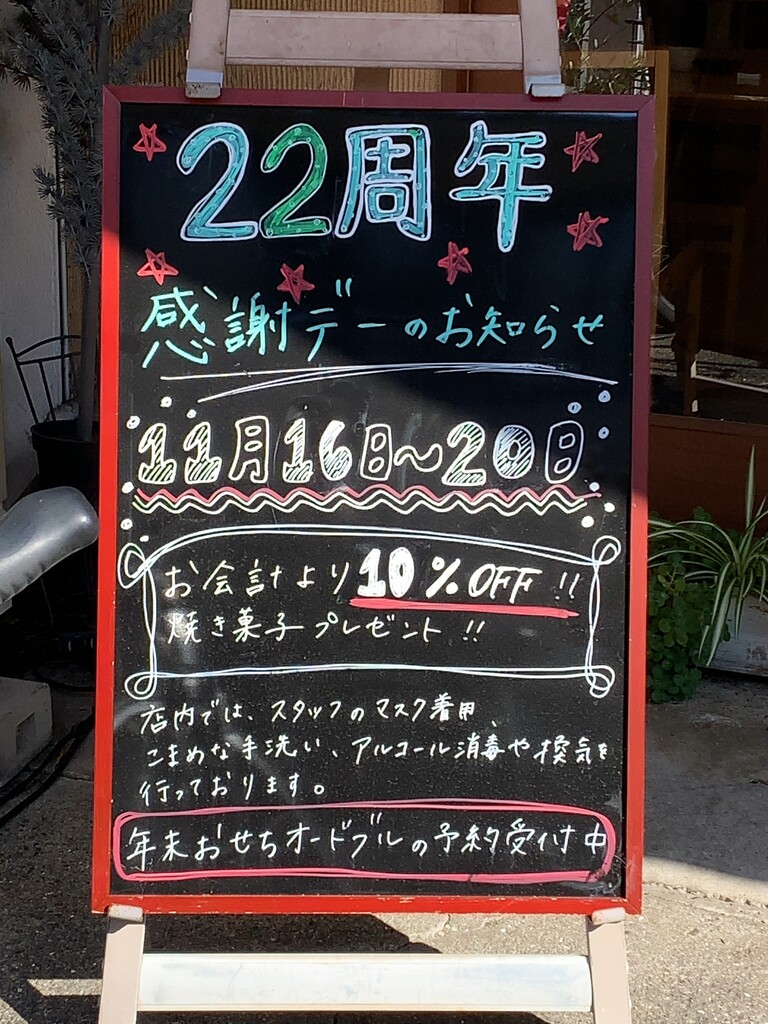 22周年
感謝デーのお知らせ
11月16日〜20日
お会計より10%OFF!!
焼き菓子プレゼント!!
店内では、スタッフのマスク着用、
こまめな手洗い、アルコール消毒や換気を
行っております。
年末おせちオードブルの予約受付中